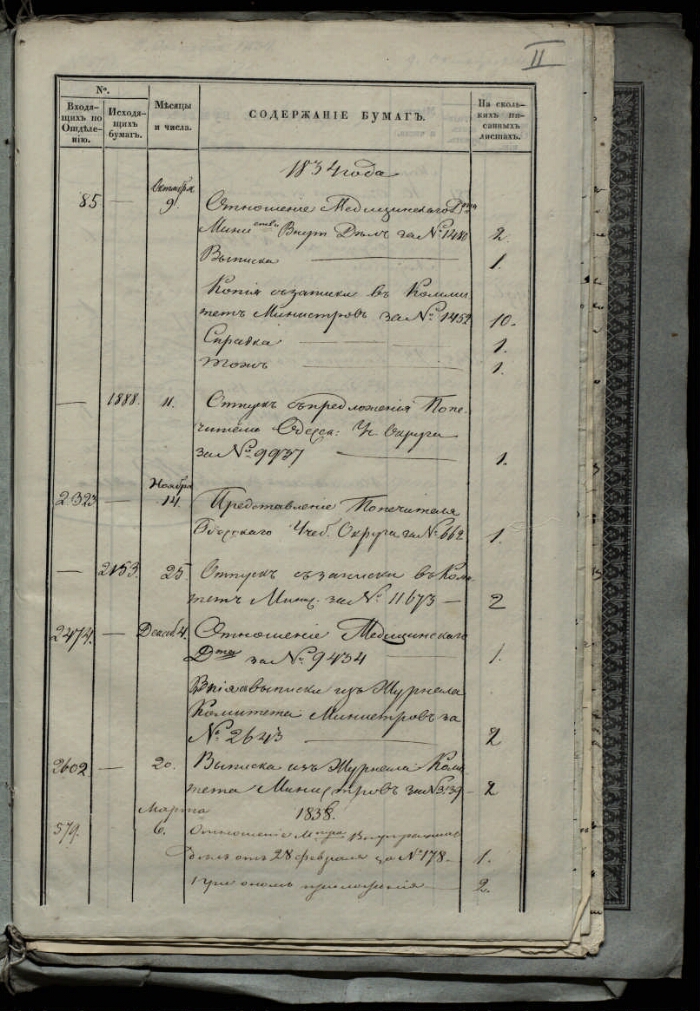 II
№.
Входящихъ по Отдѣленію.
Исходящихъ бумагъ.
Мѣсяцы и числа.
СОДЕРЖАНІЕ БУМАГЪ.
На сколькихъ писанныхъ листахъ.
1834 года
Октября
85. — 9. Отношеніе Медицинскаго Дта
Мини ства Внут Дѣлъ за № 1480 2.
Выписка — 1.
Копія съ записки въ Комми
тетъ Министровъ за № 1452 10.
Справка — 1.
Тожъ — 1.
— 1888. 11. Отпускъ съ предложенія Попе
чителю Одесск: Уч Округа
за № 9937 — 1.
Ноября
2323 — 14. Представленіе Попечителя
Одесскаго Учеб. Округа за № 662 1.
— 2153. 25. Отпускъ съ записки въ Ком
тетъ Мин. за № 11673 — 2
2474. — Декаб 4. Отношеніе Медицинскаго
Дта за № 9434 — 1.
Копія выписки изъ Журнала
Комитета Министровъ за
№ 2643 — 2
2602 — 20. Выписка изъ Журнала Коми
тета Министровъ за № 3039 — 2
Марта 1838.
579. 6. Отношеніе М Внутреннихъ
Дѣлъ отъ 28 февраля за № 178. — 1.
при ономъ приложенія — 2.